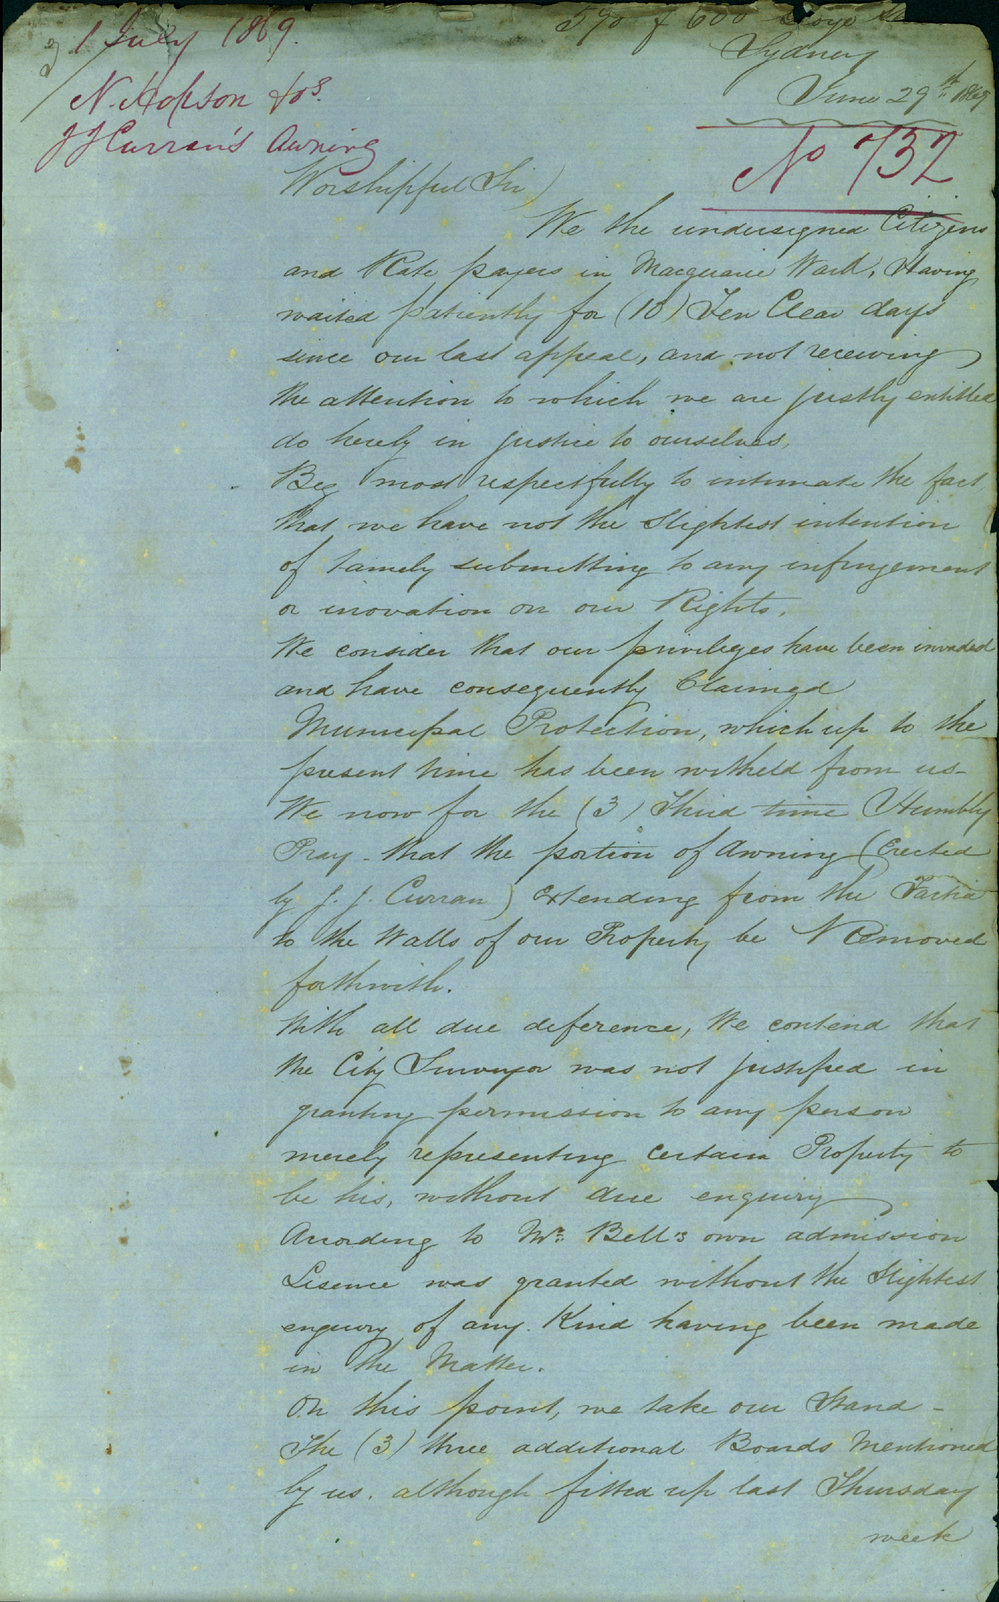 1 July 1869.
N. Hopson &os.
J J Curran's Awning
598 & 600
Sydney
June 29th 1869
No 732
Worshipful Sir)
We the undersigned Citizens
and Rate payers in Macquarie Ward, Having
waited patiently for (10) Ten Clear days
since our last appeal, and not receiving
the attention to which we are justly entitled
do hereby in justice to ourselves,
Beg most respectfully to intimate the fact
that we have not the Slightest intention
of tamely submitting to any infringement
or inovation on our Rights.
We consider that our privileges have been invaded
and have consequently Claimed
Municipal Protection, which up to the
present time has been witheld from us-
We now for the (3) Third time Humbly
Pray - that the portion of Awning (Erected
by J. J. Curran) Extending from the
to the Walls of our Property be Removed
forthwith.
With all due deference, We contend that
the City Surveyor was not justified in
granting permission to any person
merely representing certain Property to
be his, without due enquiry
According to Mr. Bell's own admission
Lisence was granted without the Slightest
enquiry of any Kind having been made
in the Matter.
On this point, we take our Stand -
The (3) three additional Boards Mentioned
by us. although fitted up last Thursday
week